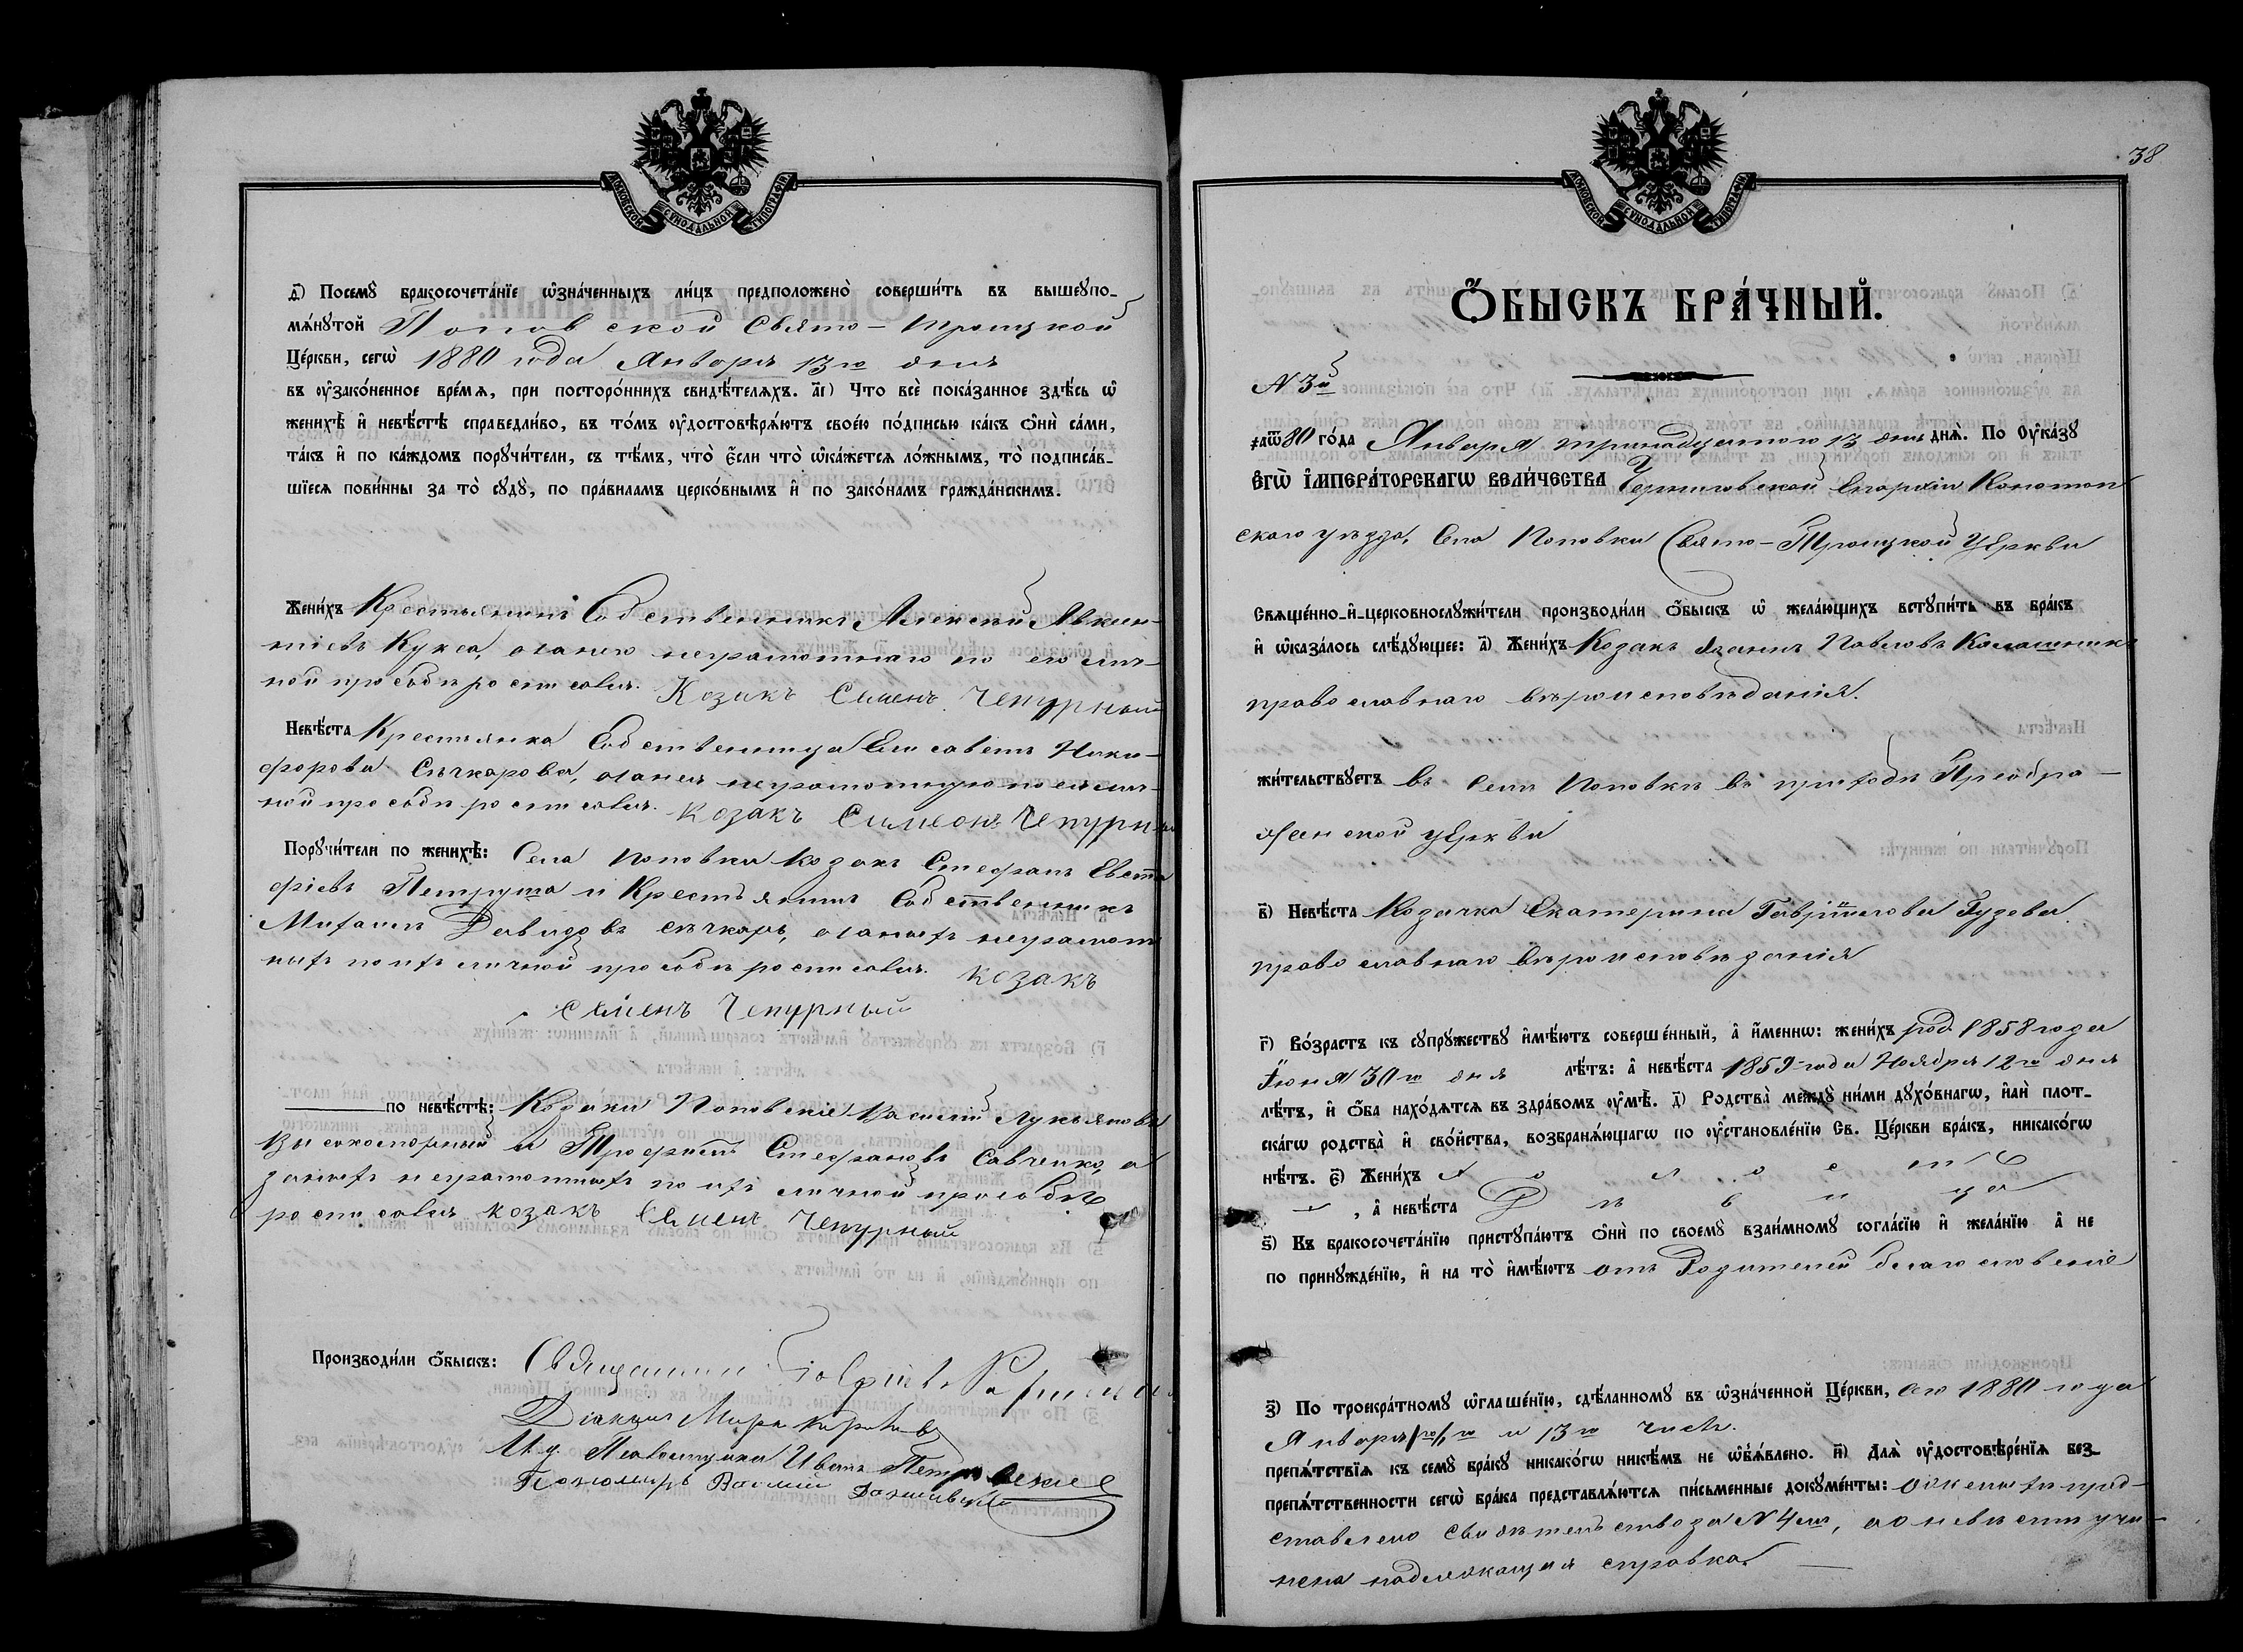 МОСКОВСКОЙ СѴНОДАЛЬНОЙ ТИПОГРАФІИ
і҃) Посемꙋ бракосочета́нїе ѡ҆зна́ченныхъ ли́цъ предположено̀ соверши́ть въ вышеꙋпо-
мѧ́нꙋтой Поповской Свято-Троицкой
Це́ркви, сегѡ̀ 1880 года Января 13го дня
въ ᲂу҆зако́ненное вре́мѧ, при посторо́ннихъ свидѣ́телѧхъ. а҃і) Что всѐ пока́занное здѣ́сь ѡ҆
женихѣ̀ и҆ невѣ́стѣ справедли́во, въ то́мъ ᲂу҆достовѣрѧ́ютъ свое́ю по́дписью ка́къ ѻ҆нѝ са́ми,
та́къ и҆ по ка́ждомъ порꙋчи́тели, съ тѣ́мъ, что̀ є҆́сли что̀ ѡ҆ка́жетсѧ ло́жнымъ, то̀ подписа́в-
шїесѧ пови́нны за то̀ сꙋдꙋ̀, по пра́виламъ церко́внымъ и҆ по зако́намъ гражда́нскимъ.
Жени́хъ Крестьянинъ Собственникъ Алексей Авксен-
тіевъ Кукса, а за него неграмотнаго по его лич-
ной прозьбѣ росписался. Козакъ Семенъ Чепурный
Невѣ́ста Крестьянка Собственница Елисавета Ники-
форова Сѣчкарова, а за нея неграмотную по ея лич-
ной прозьбѣ росписался. Козакъ Симеонъ Чепурный
Порꙋчи́тели по женихѣ̀: Села Поповки козакъ Стефанъ Евста-
фіевъ Петруша и Крестьянинъ Собственникъ
Михаилъ Давидовъ Сѣчкарь, а за нихъ неграмот-
ныхъ по ихъ личной прозьбѣ росписался. козакъ
Семенъ Чепурный
по невѣ́стѣ: Козаки Поповскіе Василій Лукьяновъ
Высокоморный и Трофимъ Стефановъ Савченко, а
за нихъ неграмотныхъ по ихъ личной прозьбѣ
росписался козакъ Семенъ Чепурный
Производи́ли ѻ҆́быскъ: Священникъ Гавріилъ
Діаконъ Маркъ
И. д. Псаломщика Иванъ
Пономарь Василій
38
МОСКОВСКОЙ СѴНОДАЛЬНОЙ ТИПОГРАФІИ
Ѻ҆́БЫСКЪ БРА́ЧНЫЙ.
N 3й
҂аѿ80 го́да Января тринадцатого 13 дня днѧ̀. По Оу҆ка́зꙋ
Є҆ГѠ̀ І҆МПЕРА́ТОРСКАГѠ ВЕЛИ́ЧЕСТВА Черниговской Епархіи Конотоп
ского уѣзда, Села Поповки Свято-Троицкой Церкви
Свѧще́нно-и҆-церковнослꙋжи́тели производи́ли ѻ҆́быскъ ѡ҆ жела́ющихъ встꙋпи́ть въ бра́къ
и҆ ѡ҆каза́лось слѣ́дꙋющее: а҃) Жени́хъ Козакъ Павловъ
православнаго вѣроисповѣданія.
жи́тельствꙋетъ въ Селѣ Поповкѣ въ приходѣ Преобра-
женской церкви
в҃) Невѣ́ста Козачка Екатерина Гавріилова Гузева
православнаго вѣроисповѣданія
г҃) Во́зрастъ къ сꙋпрꙋ́жествꙋ и҆мѣ́ютъ соверше́нный, а҆ и҆́меннѡ: жени́хъ род. 1858 года
Іюня 30го дня лѣ́тъ: а҆ невѣ́ста 1859 года Ноября 12го дня
лѣ́тъ, и҆ ѻ҆́ба нахо́дѧтсѧ въ здра́вомъ ᲂу҆мѣ̀. д҃) Родства̀ междꙋ̀ ни́ми дꙋхо́внагѡ, и҆лѝ плот-
ска́гѡ родства̀ и҆ сво́йства, возбранѧ́ющагѡ по ᲂу҆становле́нїю Св. Це́ркви бра́къ, никако́гѡ
нѣ́тъ. є҃) Жени́хъ Холостъ
, а҆ невѣ́ста Дѣвица
ѕ҃) Къ бракосочета́нїю пристꙋпа́ютъ ѻ҆нѝ по своемꙋ̀ взаи́мномꙋ согла́сїю и҆ жела́нїю а҆ не
по принꙋжде́нїю, и҆ на то̀ и҆мѣ́ютъ отъ Родителей благословеніе
з҃) По троекра́тномꙋ ѡ҆глаше́нїю, сдѣ́ланномꙋ въ ѡ҆зна́ченной Це́ркви, сего 1880 года
Января и 13го чиселъ.
препѧ́тствїѧ къ семꙋ̀ бра́кꙋ никако́гѡ никѣ́мъ не ѡ҆б̾ѧ́влено. и҃) Длѧ̀ ᲂу҆достовѣре́нїѧ без-
препѧ́тственности сегѡ̀ бра́ка представлѧ́ютсѧ пи́сьменные докꙋме́нты: о женихѣ пред-
ставлено свидѣтельство за N 4мъ, а о невѣстѣ учи-
нена надлежащая справка